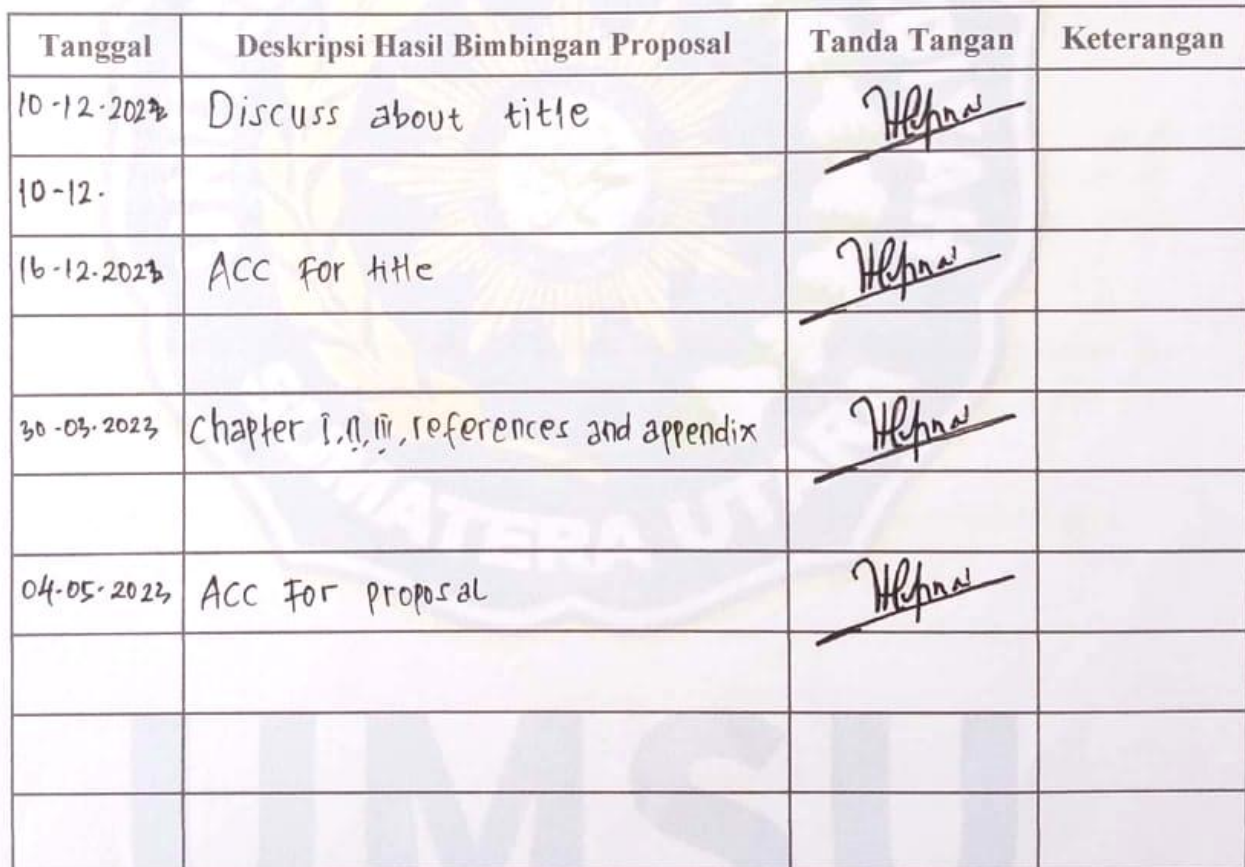 Tanggal Deskripsi Hasil Bimbingan Proposal Tanda Tangan Keterangan
10-12-2022 Discuss about title
10-12.
16-12-2022 ACC For title
30-03-2023 Chapter I, II, III, references and appendix
04-05-2023 ACC For proposal
SUMATERA UTARA
UMSU